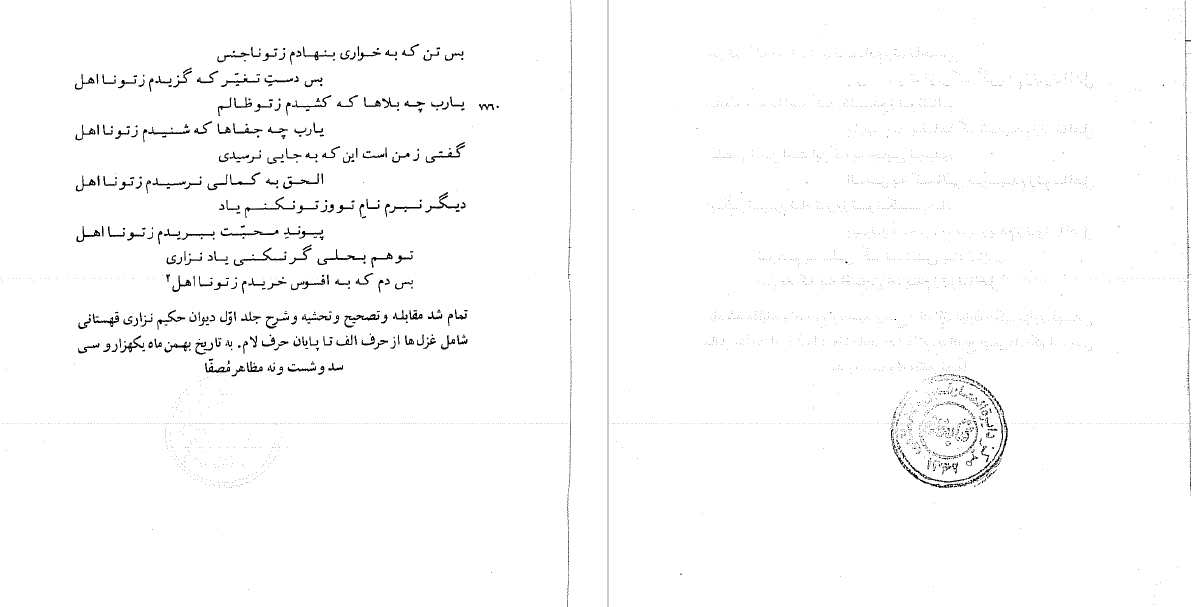 بس تن که به خواری بنهادم ز تو ناجنس
بس دستِ تغیّر که گزیدم ز تو نااهل
یارب چه بلاها که کشیدم ز تو ظالم ۷۷۶۰
یارب چه جفاها که شنیدم ز تو نااهل
گفتی ز من است این که به جایی نرسیدی
الحق به کمالی نرسیدم ز تو نااهل
دیگر نبرم نامِ تو وز تو نکنم یاد
پیوندِ محبّت ببریدم ز تو نااهل
تو هم بحلی گر نکنی یاد نزاری
بس دم که به افسوس خریدم ز تو نااهل۲
تمام شد مقابله و تصحیح و تحشیه و شرح جلد اوّل دیوان حکیم نزاری قهستانی
شامل غزل‌ها از حرف الف تا پایان حرف لام. به تاریخ بهمن ماه یکهزار و سی
سد و شست و نه مظاهر مُصفّا
مرکز دایرة المعارف